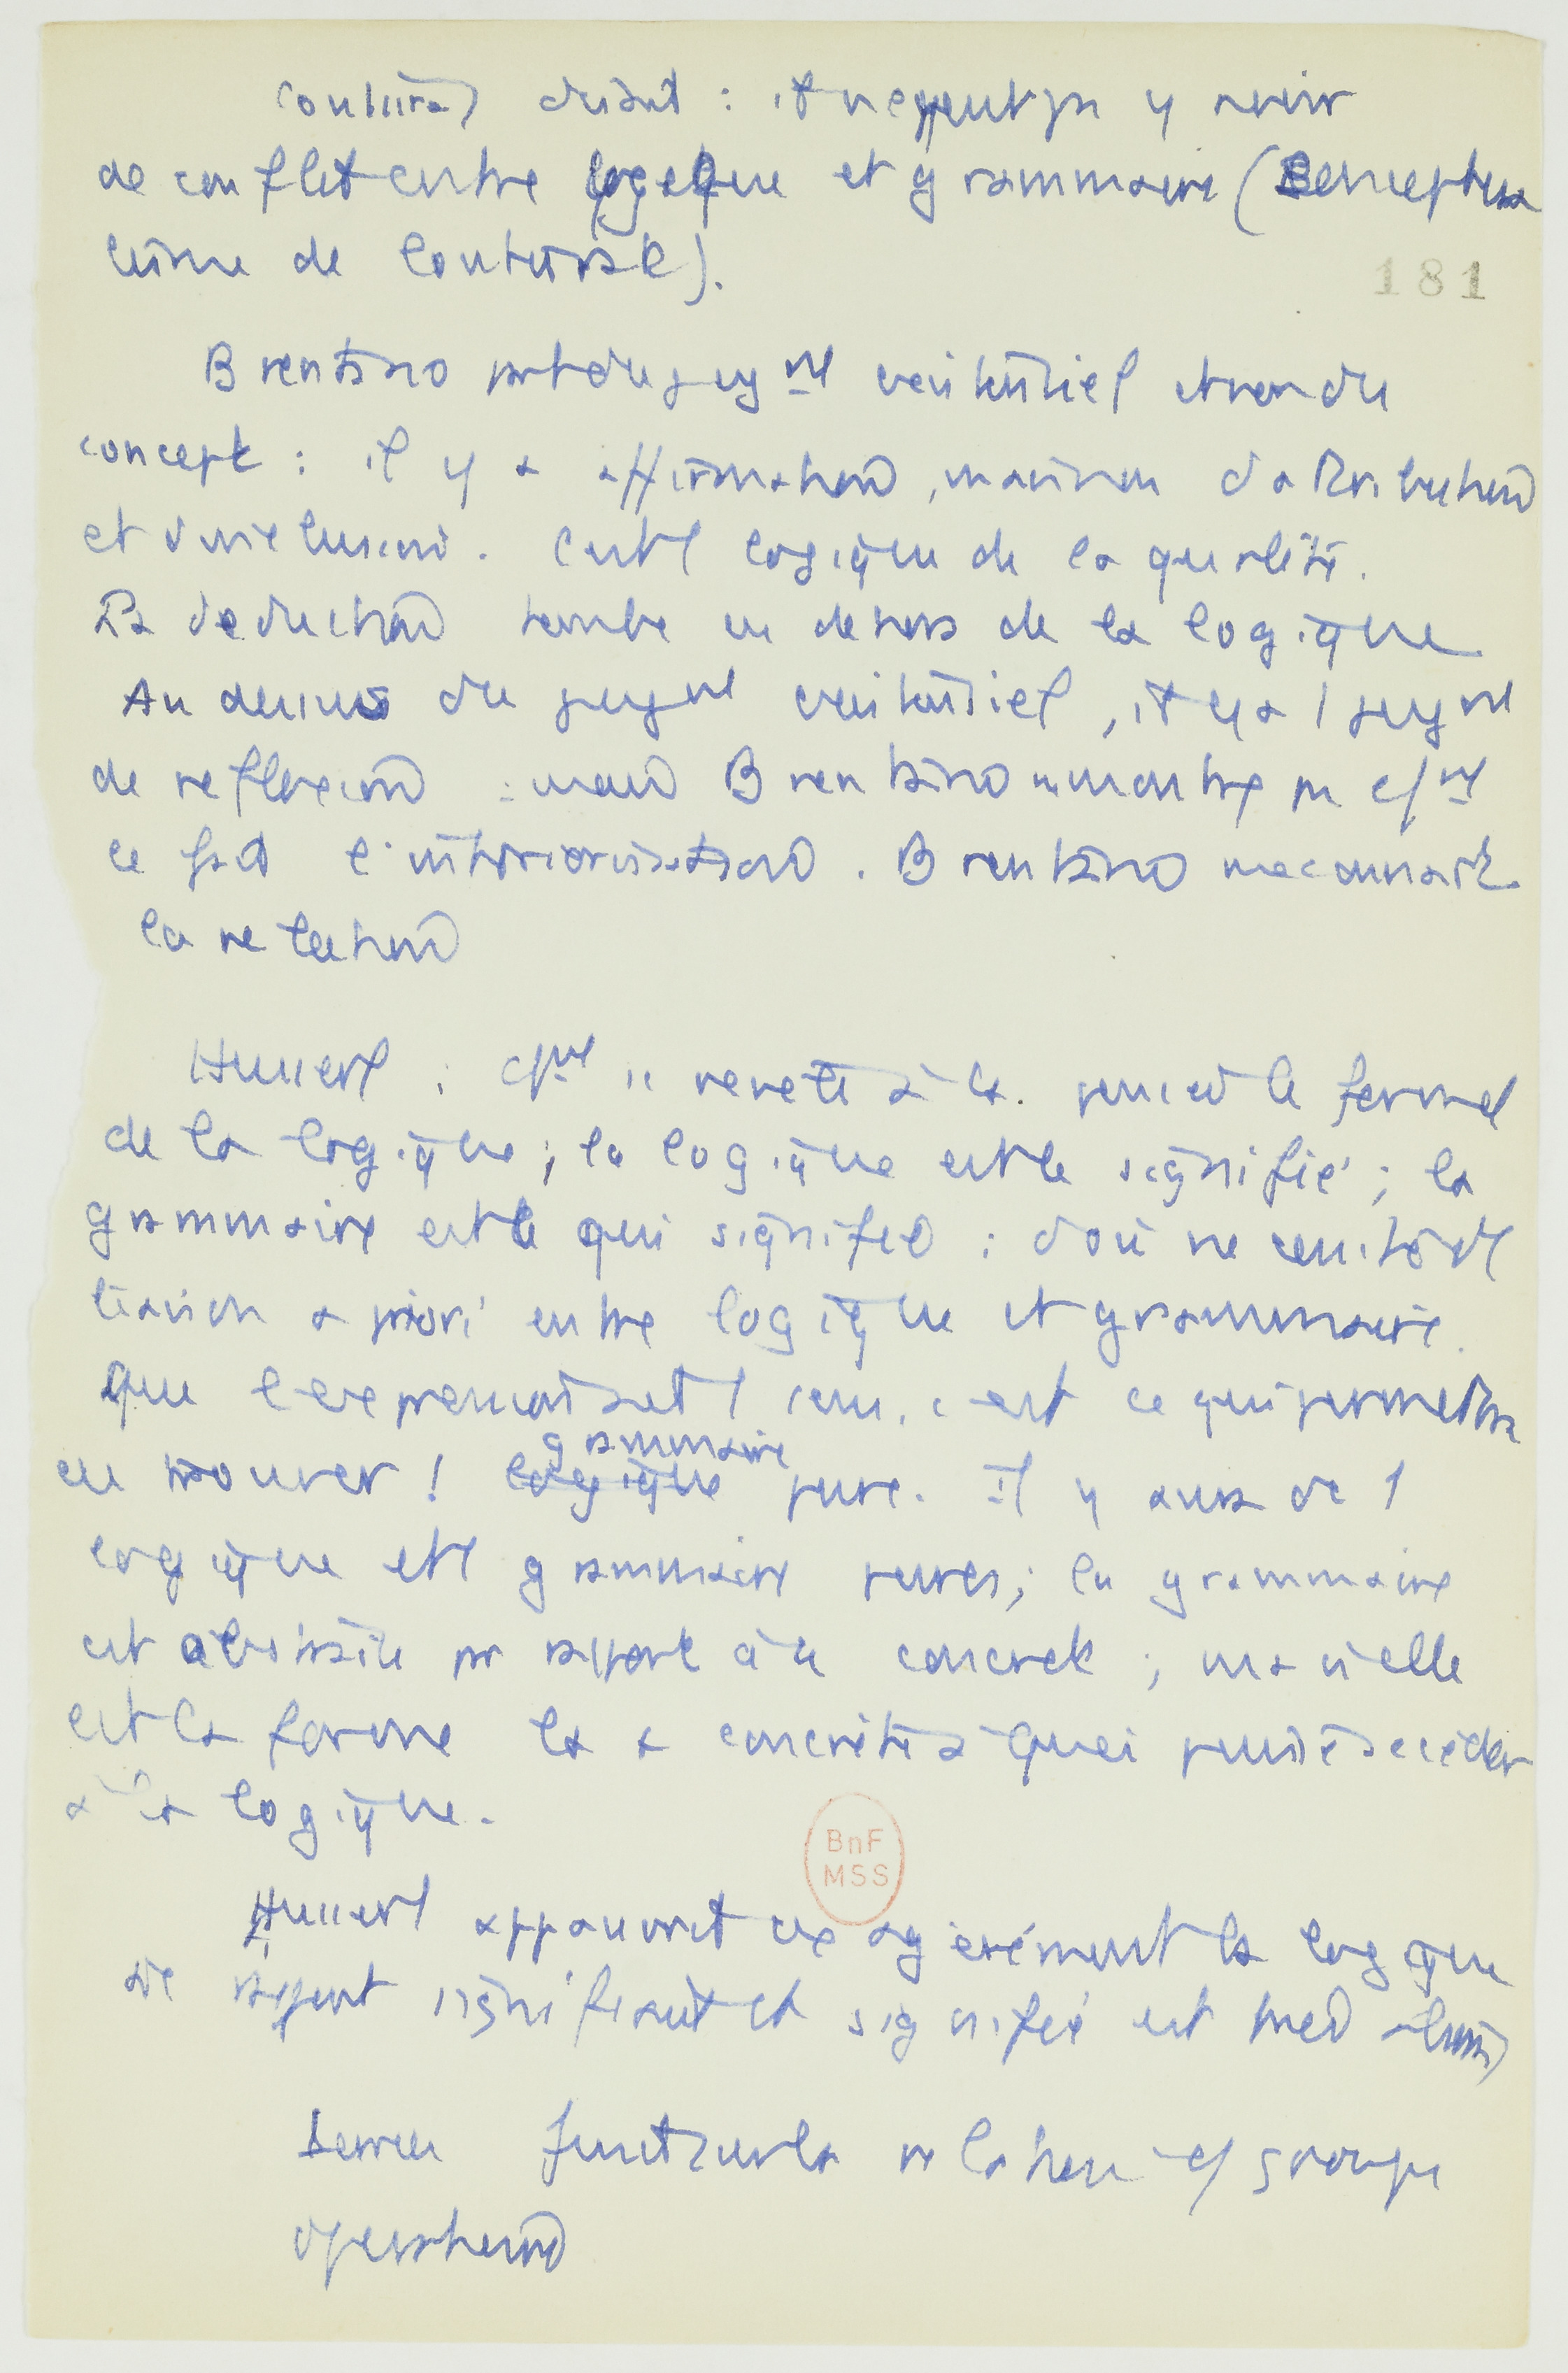 contrad disant : il ne peut pas y avoir
de conflit entre logique et grammaire (
 de contenu).
181
Brentano part du jugnt existentiel et non du
concept : il y a affirmation, mais non d'attribution
et d'inclusion. C'est 1 logique de la qualité.
La déduction tombe en dehors de la logique
Au dessus du jugnt existentiel, il y a 1 jugnt
de réflexion : mais Brentano ne montre pas c/nt
se fait l'intériorisation. Brentano méconnaît
la relation
Husserl : c/nt se révèle à la pensée le formel
de la logique ; la logique est le signifié ; la
grammaire est le qui signifie : d'où nécessité d'1
liaison a priori entre logique et grammaire.
Que l'expression ait 1 sens, c'est ce qui permettra
de trouver 1 logique grammaire pure. Il y aura dc 1
logique et 1 grammaire pures ; la grammaire
est abstraite par rapport à la concrète ; mais elle
est la forme la + concrète à quoi puisse accéder
à la logique.
Husserl appauvrit exagérément la logique
Le rapport signifiant et signifié est très
 la relation c/ groupe
opération